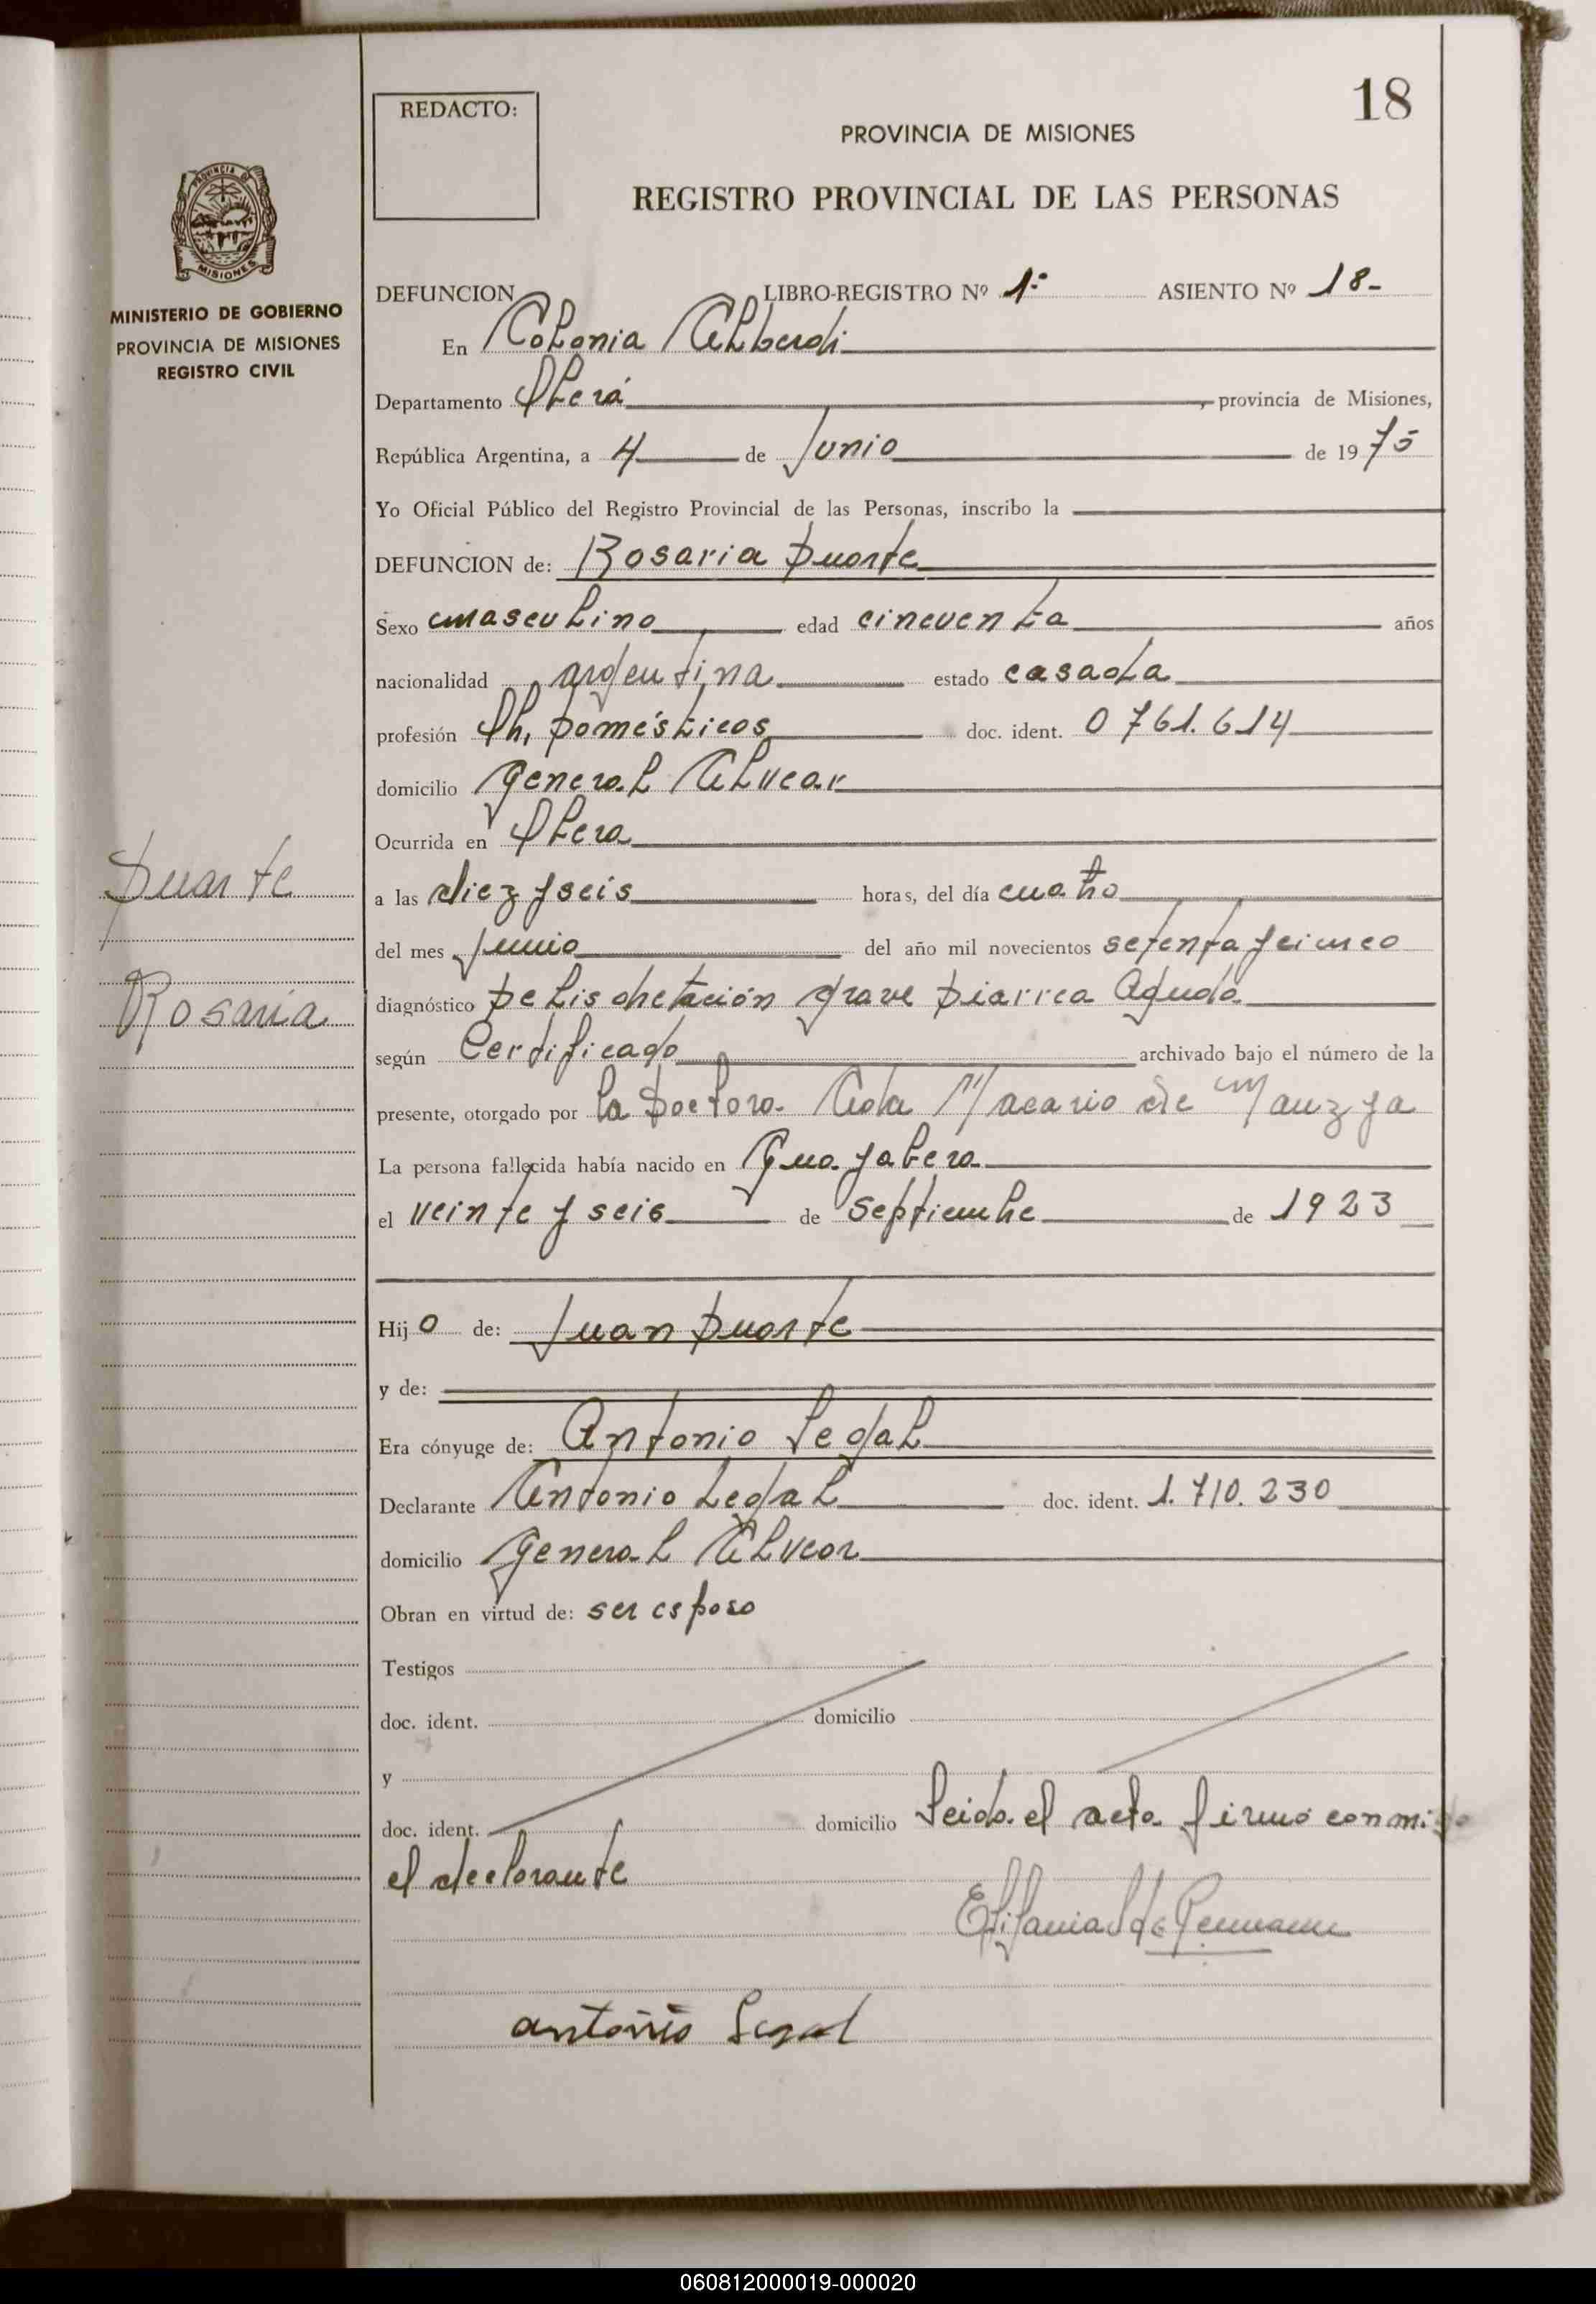 18
REDACTO:
PROVINCIA DE MISIONES
REGISTRO PROVINCIAL DE LAS PERSONAS
PROVINCIA DE
MISIONES
MINISTERIO DE GOBIERNO
PROVINCIA DE MISIONES
REGISTRO CIVIL
DEFUNCION LIBRO-REGISTRO Nº 1º ASIENTO Nº 18-
En Colonia Alberdi
Departamento Oberá, provincia de Misiones,
República Argentina, a 4 de Junio de 1975
Yo Oficial Público del Registro Provincial de las Personas, inscribo la
DEFUNCION de: Rosaria Duarte
Sexo masculino edad cincuenta años
nacionalidad argentina estado casada
profesión Qh, Domésticos doc. ident. 0761.614
domicilio General Alvear
Ocurrida en Obera
Duarte
a las diez y seis horas, del día cuatro
del mes Junio del año mil novecientos setenta y cinco
Rosaria
diagnóstico Deshidratación grave Diarrea Aguda
según Certificado archivado bajo el número de la
presente, otorgado por la Doctora Macario de
La persona fallecida había nacido en
el veinte y seis de Septiembre de 1923
Hijo de: Juan Duarte
y de:
Era cónyuge de: Antonio Legal
Declarante Antonio Legal doc. ident. 1.710.230
domicilio General Alvear
Obran en virtud de: ser esposo
Testigos
doc. ident. domicilio
y
doc. ident. domicilio Leida el acta firmó conmigo
el declarante
Epifania de
antonio Legal
060812000019-000020